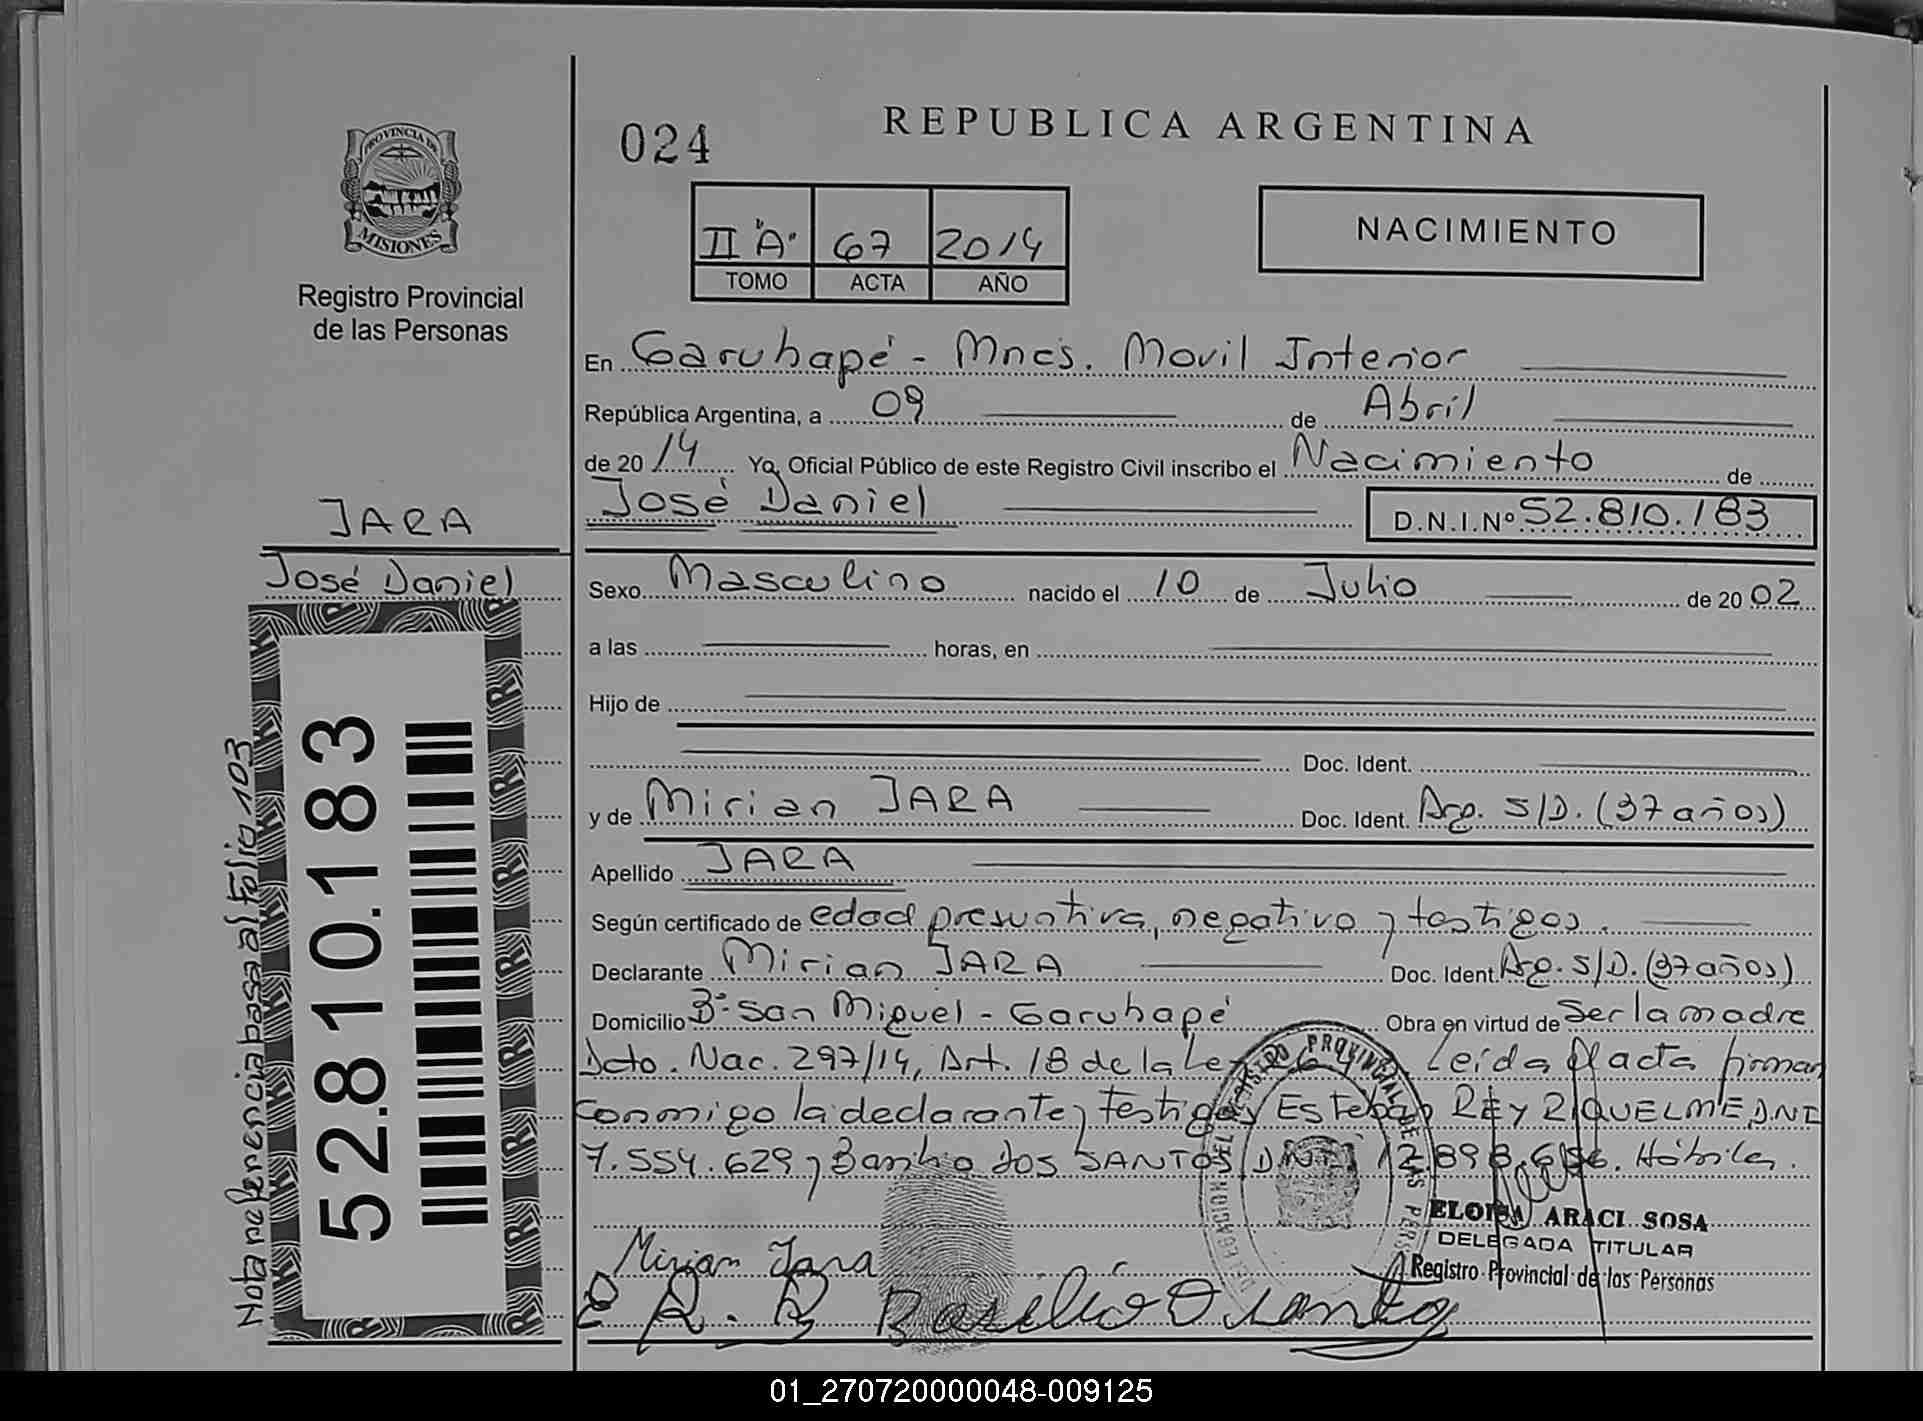 PROVINCIA DE
MISIONES
Registro Provincial
de las Personas
024
REPUBLICA ARGENTINA
II "A" 67 2014
TOMO ACTA AÑO
NACIMIENTO
En Garuhapé - Mnes. Movil Interior
República Argentina, a 09 de Abril
de 2014 Yo, Oficial Público de este Registro Civil inscribo el Nacimiento de
José Daniel D.N.I.Nº 52.810.183
JARA
José Daniel
Sexo Masculino nacido el 10 de Julio de 2002
a las horas, en
Hijo de
Doc. Ident.
y de Mirian JARA Doc. Ident. Arg. S/D. (37 años)
Apellido JARA
Según certificado de edad presuntiva, negativo y testigos.
Declarante Mirian JARA Doc. Ident. Arg. S/D. (37 años)
Domicilio Bº San Miguel - Garuhapé Obra en virtud de Ser la madre
Dcto. Nac. 297/14, Art. 18 de la Leída el acta firman
conmigo la declarante y testigos Esteban REY RIQUELME DNI
7.554.629 y Basilio dos SANTOS DNI 12.898. Hábiles.
ELOISA ARACI SOSA
DELEGADA TITULAR
Registro Provincial de las Personas
Mirian Jara
E R. R Basilio D Santos
52.810.183
Nota referencia basa al Folio 103
REGISTRO PROVINCIAL DE LAS PERS
01_270720000048-009125